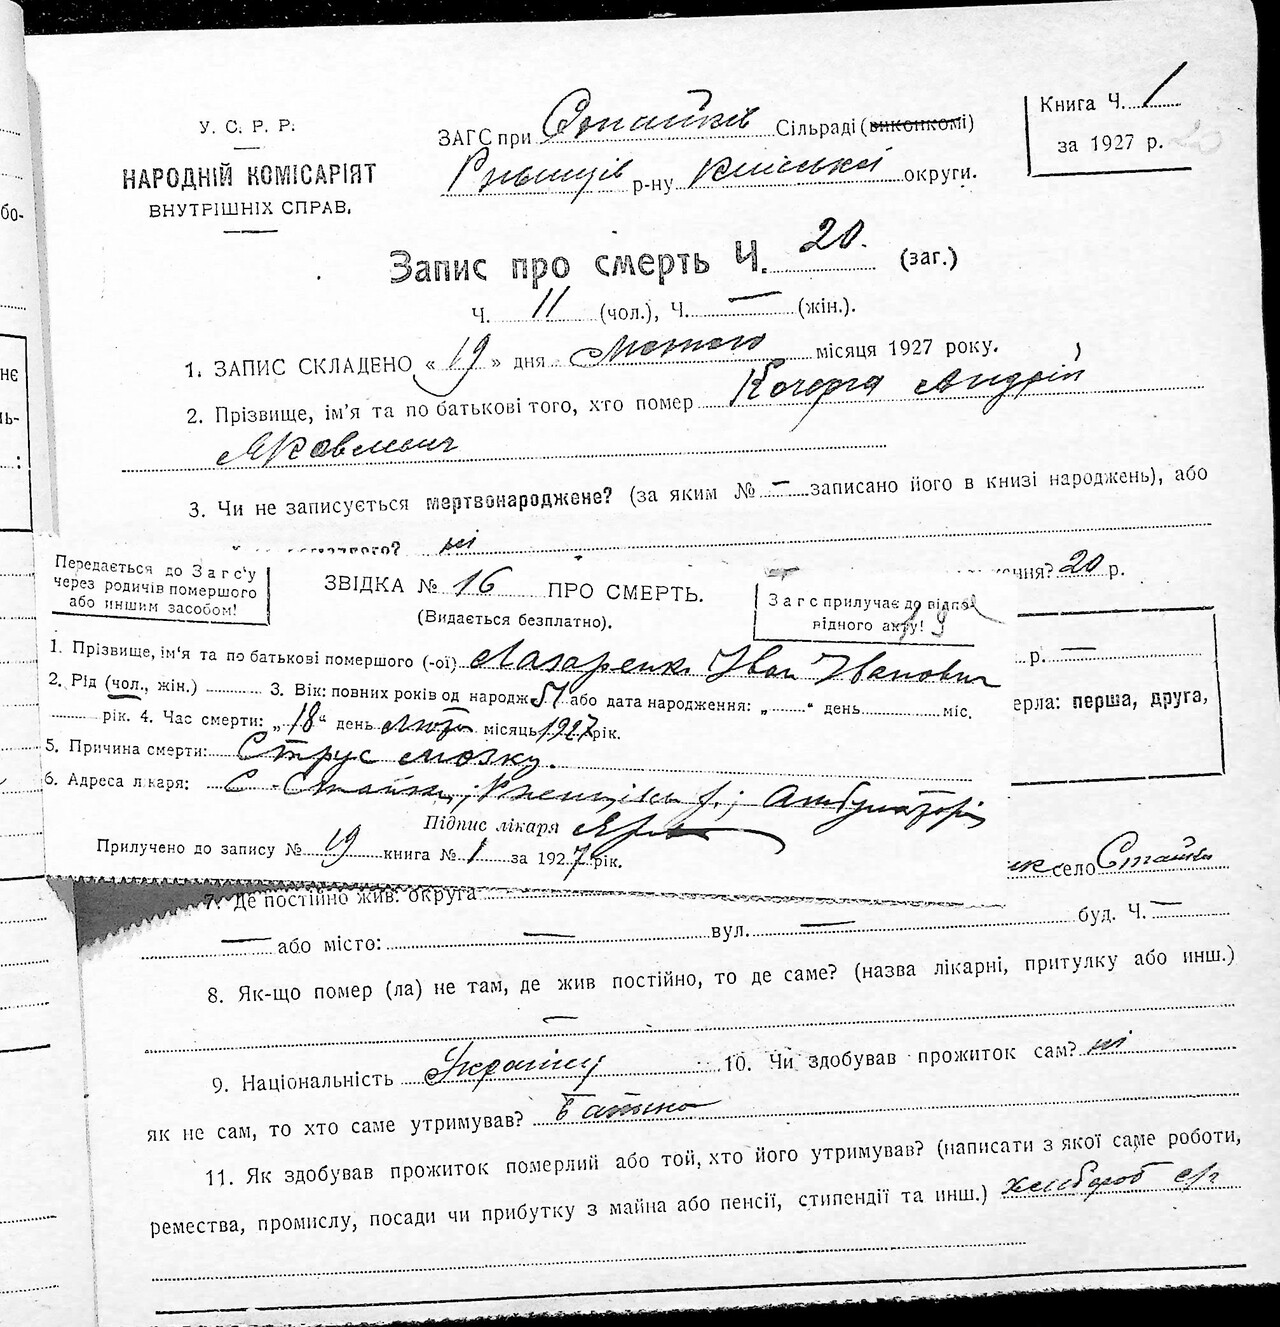 У. С. Р. Р.
НАРОДНІЙ КОМІСАРІЯТ
ВНУТРІШНІХ СПРАВ.
ЗАГС при Стайків Сільраді (виконкомі)
р-ну Київської округи.
Книга Ч. 1
за 1927 р.
Запис про смерть Ч. 20. (заг.)
Ч. 11 (чол.), Ч. — (жін.).
1. ЗАПИС СКЛАДЕНО « 19 » дня Лютого місяця 1927 року.
2. Прізвище, ім'я та по батькові того, хто помер Кочерга Андрій
Яковлевич
3. Чи не записується мертвонароджене? (за яким № — записано його в книзі народжень), або
ні
Передається до Загс'у
через родичів помершого
або иншим засобом!
ЗВІДКА № 16 ПРО СМЕРТЬ.
(Видається безплатно).
Загс прилучає до відпо-
відного акту! 19
ння? 20 р.
1. Прізвище, ім'я та по батькові помершого (-ої) Лазаренко Іван Іванович
р. —
2. Рід (чол., жін.) 3. Вік: повних років од народж 57 або дата народження: „ “ день міс.
ерла: перша, друга,
рік. 4. Час смерти: „ 18 “ день місяць 1927 рік.
5. Причина смерти: Струс мозку.
6. Адреса лікаря: С. Стайки, Амбулаторія
Підпис лікаря
Прилучено до запису № 19 книга № 1 за 1927 рік.
село Стайки
7. Де постійно жив: округа
— або місто: — вул. — буд. Ч. —
8. Як-що помер (ла) не там, де жив постійно, то де саме? (назва лікарні, притулку або инш.)
—
9. Національність Українец 10. Чи здобував прожиток сам? ні
як не сам, то хто саме утримував? батько
11. Як здобував прожиток померлий або той, хто його утримував? (написати з якої саме роботи,
ремества, промислу, посади чи прибутку з майна або пенсії, стипендії та инш.) хлібороб